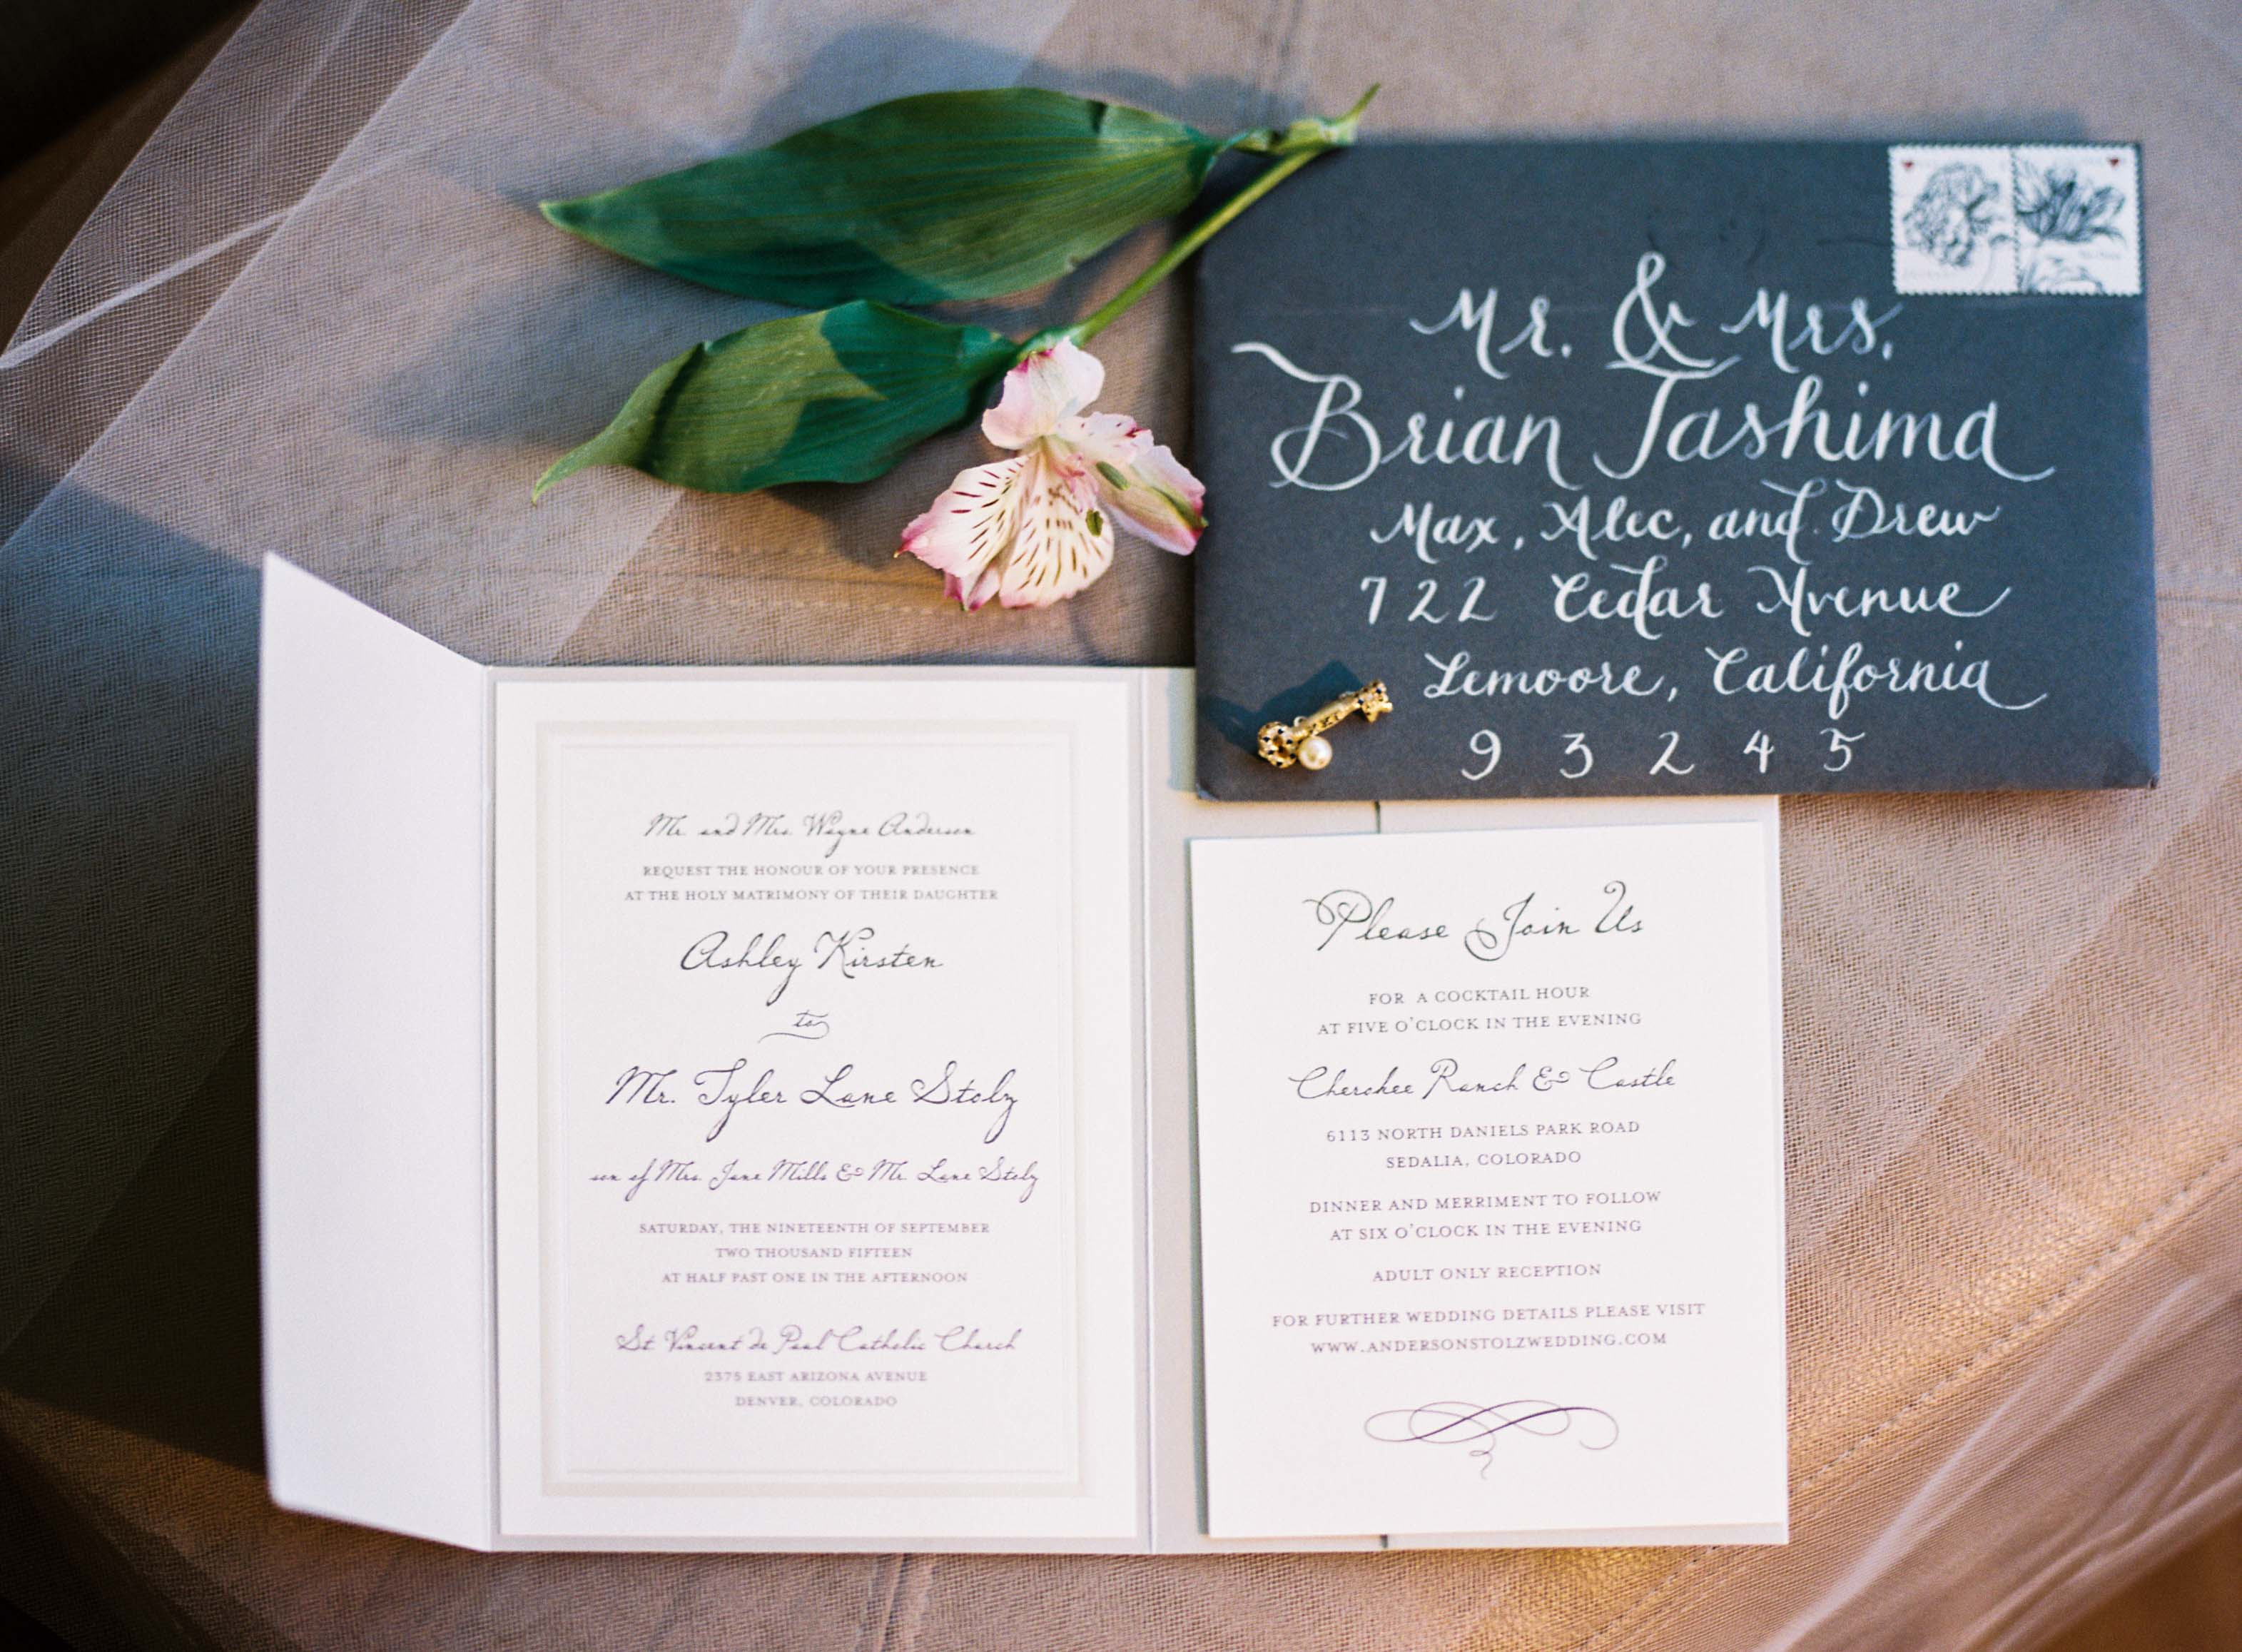 Mr. & Mrs.
Brian Tashima
Max, Alec, and Drew
722 Cedar Avenue
Lemoore, California
9 3 2 4 5
Mr. and Mrs. Wayne Anderson
REQUEST THE HONOUR OF YOUR PRESENCE
AT THE HOLY MATRIMONY OF THEIR DAUGHTER
Ashley Kirsten
to
Mr. Tyler Lane Stolz
son of Mrs. Jane Mills & Mr. Lane Stolz
SATURDAY, THE NINETEENTH OF SEPTEMBER
TWO THOUSAND FIFTEEN
AT HALF PAST ONE IN THE AFTERNOON
St. Vincent de Paul Catholic Church
2375 EAST ARIZONA AVENUE
DENVER, COLORADO
Please Join Us
FOR A COCKTAIL HOUR
AT FIVE O'CLOCK IN THE EVENING
Cherokee Ranch & Castle
6113 NORTH DANIELS PARK ROAD
SEDALIA, COLORADO
DINNER AND MERRIMENT TO FOLLOW
AT SIX O'CLOCK IN THE EVENING
ADULT ONLY RECEPTION
FOR FURTHER WEDDING DETAILS PLEASE VISIT
WWW.ANDERSONSTOLZWEDDING.COM